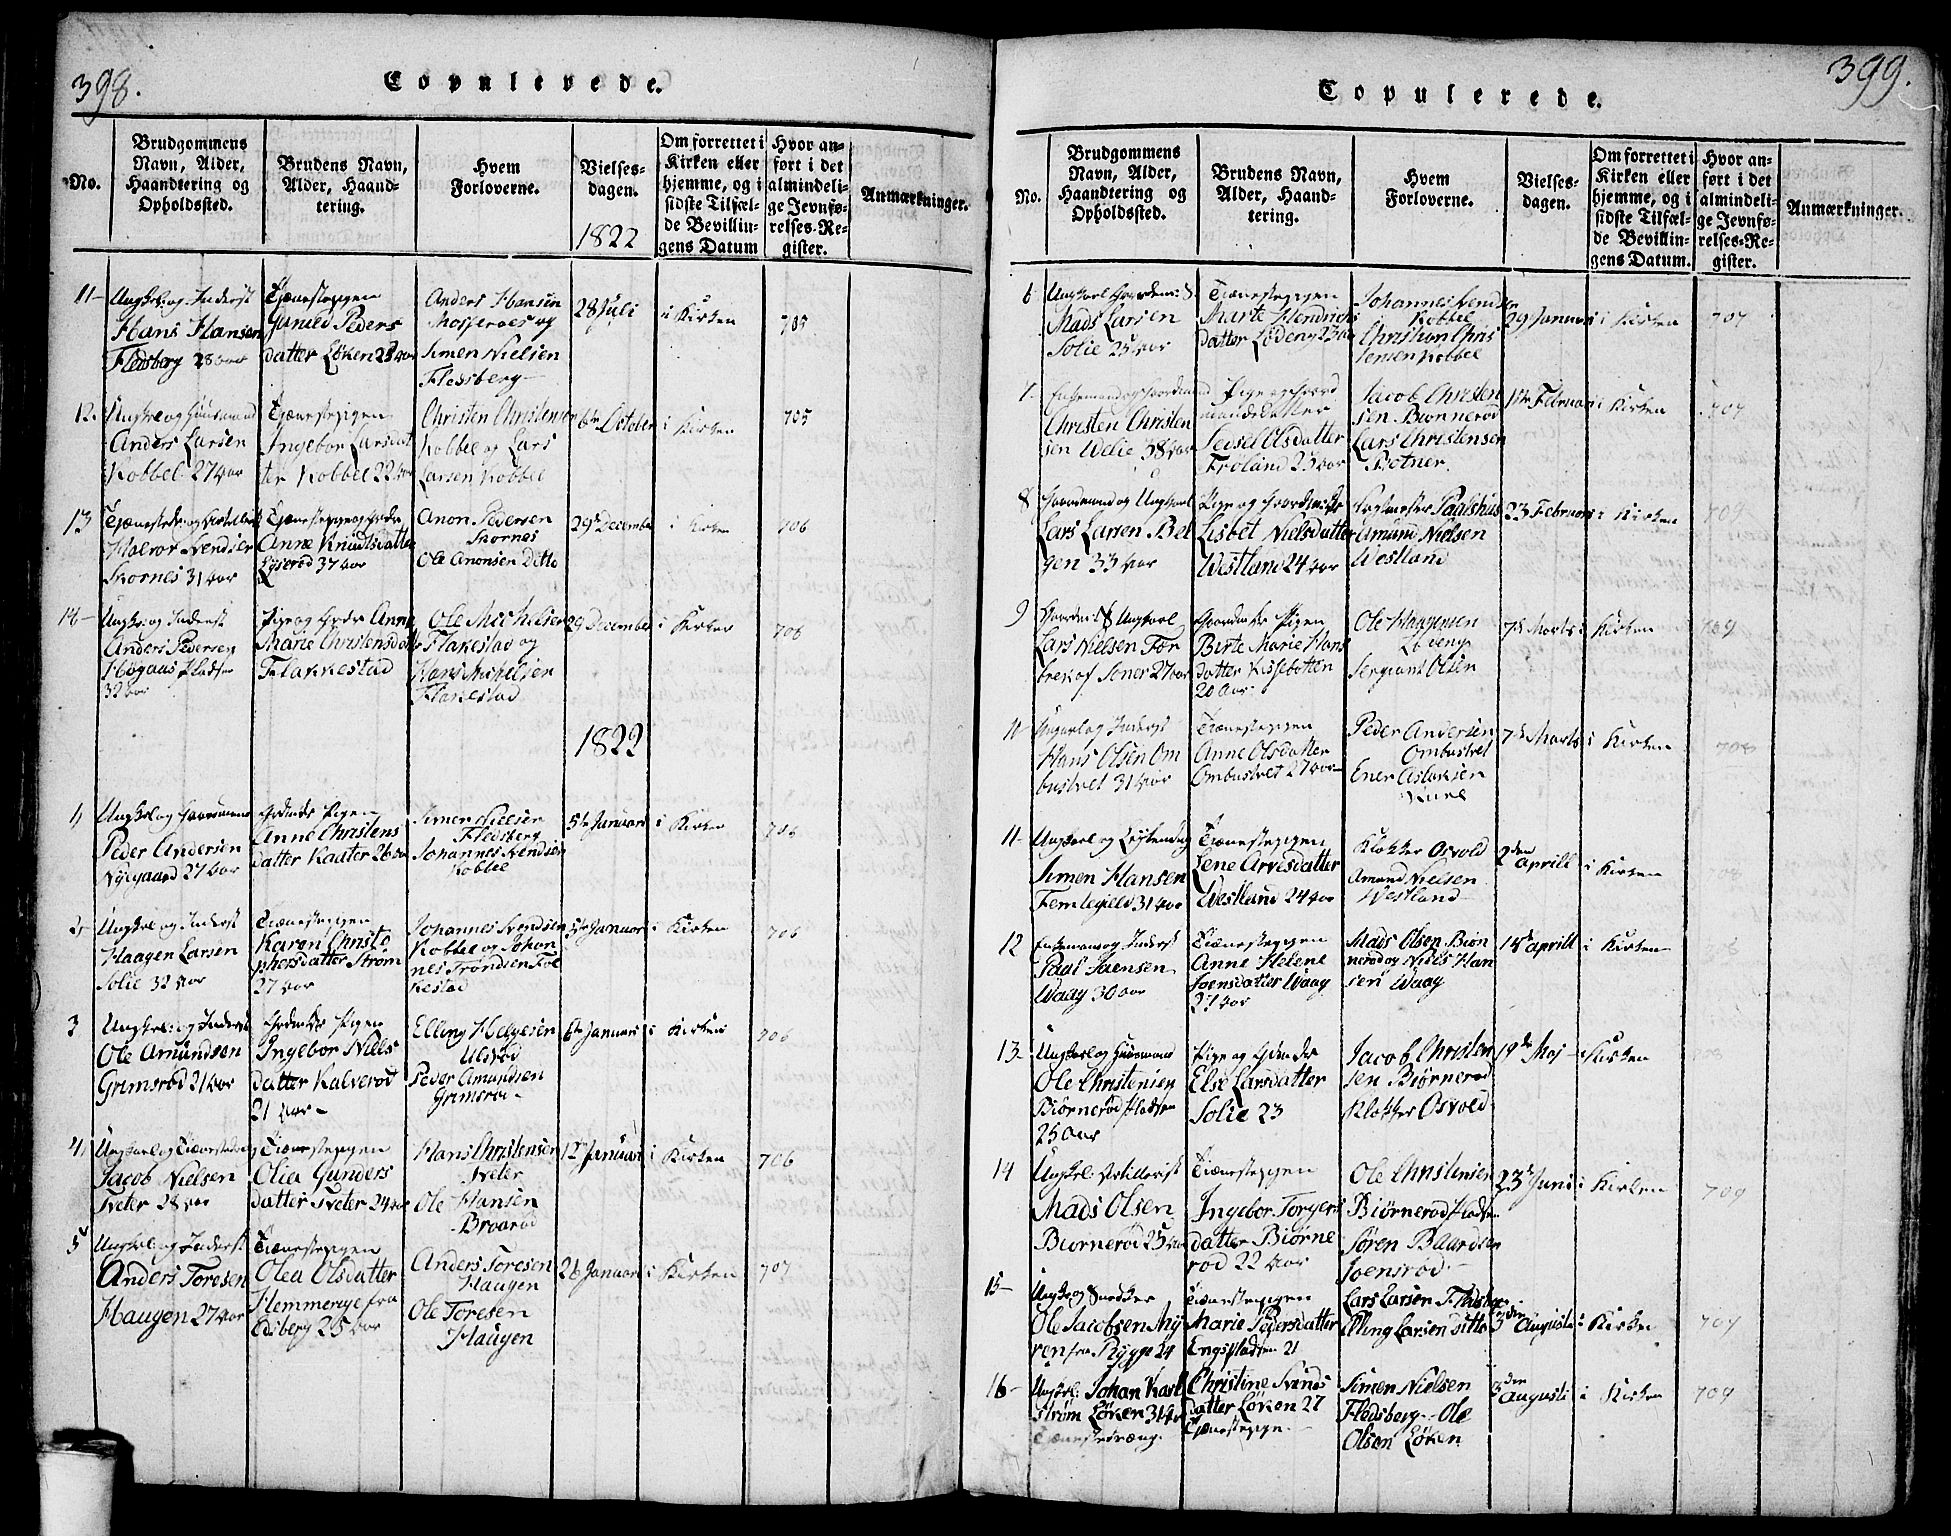 398.
Copulerede.
No.
Brudgommens
Navn, Alder,
Haandtering og
Opholdssted.
Brudens Navn,
Alder, Haand-
tering.
Hvem
Forloverne.
Vielses-
dagen.
1822
Om forrettet i
Kirken eller
hjemme, og i
sidste Tilfæl-
de Bevillin-
gens Datum
Hvor an-
ført i det
almindeli-
ge Jevnfø-
relses-Re-
gister.
Anmærkninger.
11-
Ungkl. og Inderst
Hans Hansen
Fledsberg 28 aar
Tienestepigen
Gunild Peders
datter Løken
Anders Hansen
og
Simen Nielsen
Fledsberg
28 Juli
i Kirken
705
12.
Ungkl og Huusmand
Anders Larsen
Kobbel 27 aar
Tienestepigen
Ingebor Larsdat
ter Kobbel 22 aar
Christen Christensen
Kobbel og Lars
Larsen Kobbel
6te October
i Kirken
705
13
Halvor Svendsen
Skornes 31 aar
Anne Knudtsdatter
37 aar
Anon Pedersen
Skornes
Ole Anonsen Ditto
29 December
i Kirken
706
14-
Ungkl og Inderst
Anders Pedersen
32 aar
Pige og Anne
Marie Christensdatter
Flakkestad
Ole Michelsen
Flakestad og
Hans Michelsen
Flakestad
29 December
i Kirken
706
1822
1
Ungkl og Gaardmand
Peder Andersen
Nyegaard 27 aar
Pigen
Anne Christens
datter Kaater 26 aar
Simen Nielsen
Fledsberg
Johannes Svendsen
Kobbel
5te Januari
i Kirken
706
2
Ungkl og Inderst
Haagen Larsen
Solie 32 aar
Tienestepigen
Karen Christo
phersdatter Strøm
27 aar
Johannes Svendsen
Kobbel og Johan
nes Trondsen Fla
kestad
5te Januar
i Kirken
706
3
Ungkl: og Inderst
Ole Amundsen
Grimsrød 21 aar
Pigen
Ingebor Niels
datter Kalverød
21 aar-
Elling Helgesen
Ulsrød
Peder Amundsen
Grimsrød-
6te Januari
i Kirken
706
4
Jacob Nielsen
Tveter 28 aar
Tienestepigen
Olia Gunders
datter Tveter 24 aar
Hans Christensen
Tveter
Ole Hansen
Braarød
12te Januari
i Kirken
706
5
Ungkl og Inderst
Anders Toresen
Haugen 27 aar
Tienestepigen
Olea Olsdatter
fra
Edsberg 25 aar
Anders Toresen
Haugen
Ole Toresen
Haugen
26 Januari
i Kirken
707
399.
Copulerede.
No.
Brudgommens
Navn, Alder,
Haandtering og
Opholdssted.
Brudens Navn,
Alder, Haand-
tering.
Hvem
Forloverne.
Vielses-
dagen.
Om forrettet i
Kirken eller
hjemme, og i
sidste Tilfæl-
de Bevillin-
gens Datum.
Hvor an-
ført i det
almindeli-
ge Jevnfø-
relses-Re-
gister.
Anmærkninger.
6
Mads Larsen
Solie 25 aar
Tienestepigen
Marte Hendrics
datter Lødeng 23 aar
Johannes Svendsen
Kobbel
Christian Chris
tensen Kobbel
29 Januari
i Kirken
707
7.
Enkemand og Gaardmand
Christen Christen
sen Welie 38 aar
Pige og Gaard
mandsdatter
Sedsel Olsdatter
Froland 23 aar
Jacob Christen
sen Biørnerød
Lars Christensen
Botner.
Februari
i Kirken
707
8
Gaardmand og Ungkarl
Lars Larsen Bel
gen 33 aar
Lisbet Nielsdatter
Westland 24 aar
Amund Nielsen
Westland
23 Februari
i Kirken
707
9
Ungkarl
Lars Nielsen
af Soner 27 aar
Pigen
Birte Marie Hans
datter Kissebotten
20 Aar
Ole Mogensen
Sergiant Olsen
7de Marts
i Kirken
709
10
Ungkarl og Inderst
Hans Olsen Om
bustvet 31 aar
Tienestepigen
Anne Olsdatter
Ombustvet 27 aar-
Peder Andersen
Ombustvet
7de Marts
i Kirken
708
11-
Simen Hansen
31 aar
Tienestepigen
Lene Arvesdatter
Westland 24 aar
Klokker Osvold
Amund Nielsen
Westland
2den Aprill
i Kirken
12
Enkemand og Inderst
Paal Joensen
Waag 30 aar
Tienestepigen
Anne Helene
Joensdatter Waag
27 aar
Mads Olsen Biør
nerød og Niels Han
sen Waag
14de Aprill
i Kirken
13-
Ungkarl og Huusmand
Ole Christensen
Biørnerød Pladsen
25 Aar
Pige og
Else Larsdatter
Solie 23
Jacob Christen
sen Biørnerød
Klokker Osvold.
19de Maj
Kirken
14
Ungkl. Artillerist
Mads Olsen
Biørnerød 25 aar
Tienestepigen
Ingebor Torgers
datter Biørne
rød 22 aar
Ole Christensen
Biørnerød Pladsen
Søren Baardsen
Joensrød.
23de Juni
i Kirken
709
15-
Ungkl og Snedker
Ole Jacobsen My
ren fra Rygge 24
Tienestepigen
Marie Pedersdatter
Engspladsen 21
Lars Larsen Fledsberg
Elling Larsen ditto
3den Augusti
i Kirken
709
16-
Ungkl: Johan Karl
strøm Løken 31 aar
Tjenestedræng.
Christine Svends
datter Løken 27
Tjenestepige.
Simen Nielsen
Fledsberg - Ole
Olsen Løken
3den Augusti
i Kirken
709